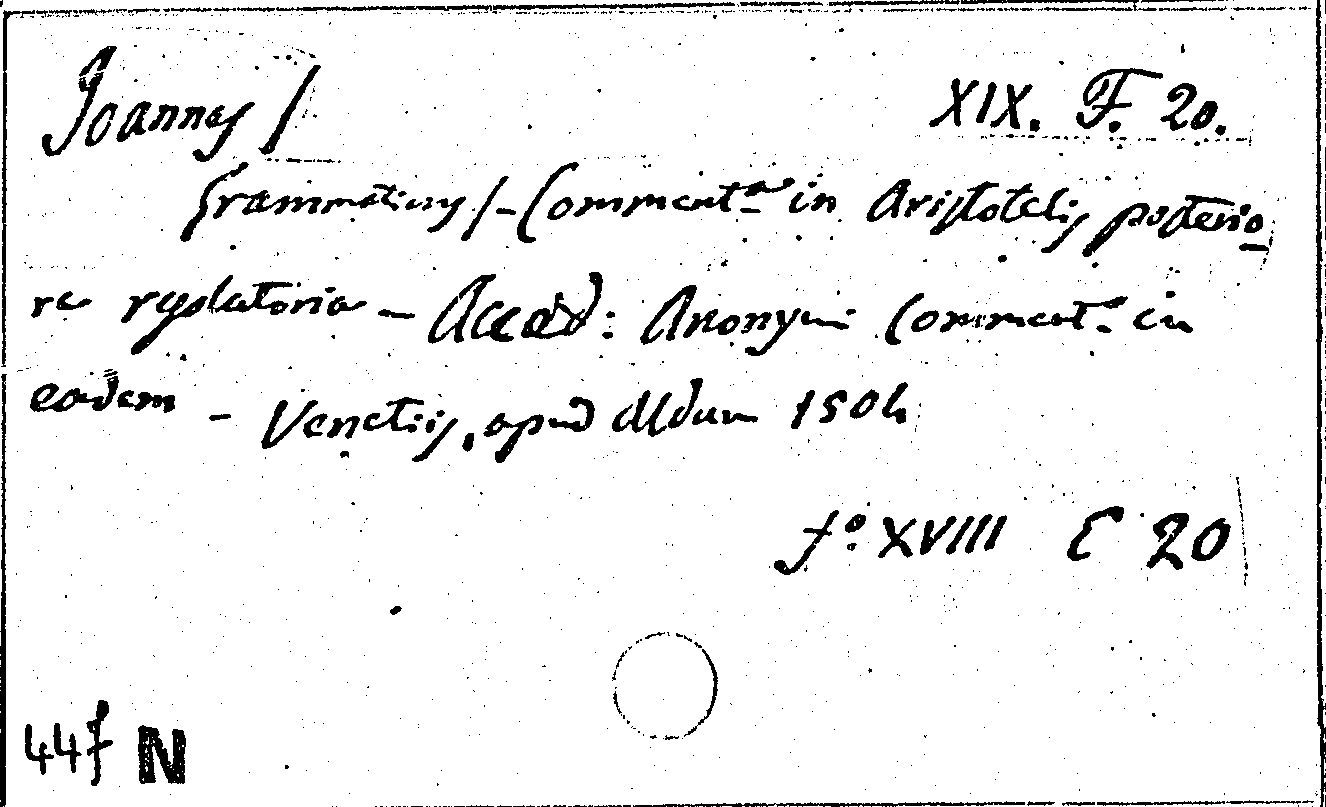 Joannes /
XIX. F. 20.
Grammaticus / - Comment.a in Aristotelis posterio
re resolutoria - Acced: Anonymi Comment.a in
eadem - Venetiis, apud Aldum 1504
fo. XVIII E 20
447 N